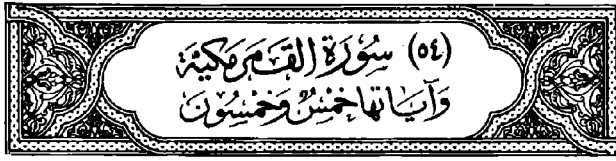 (٥٤) سُورَة القَمَر مَكيّة
وَآيَاتهَا خَمْسٌ وَخَمْسُونَ